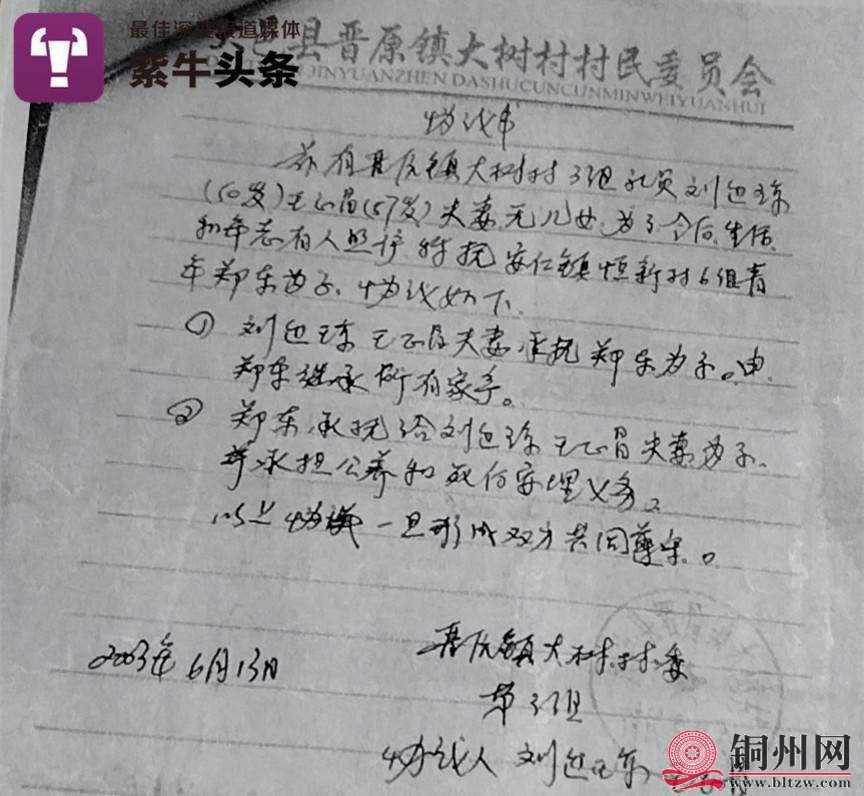 最佳深度报道媒体
紫牛头条
县晋原镇大树村村民委员会
JINYUANZHEN DASHUCUNCUNMINWEIYUANHUI
协议书
兹有晋原镇大树村3组社员刘
(50岁)王正昌(57岁)夫妻无儿女,为了今后生活
和年老有人照护 特抚安仁镇恒新村6组青
年郑东为子、协议如下、
① 刘 王正昌夫妻承抚郑东为子。由
郑东继承所有家产。
② 郑东承抚给刘 王正昌夫妻为子、
并承担公养和死后安埋义务、
以上协议一旦形成双方共同遵守。
2003年6月13日
晋原镇大树村村委
第3组
协议人 刘
铜州网
www.bltzw.com